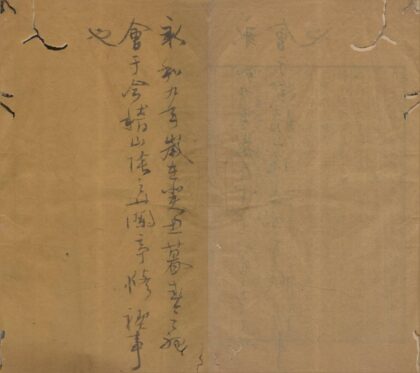 永和九年歲在癸丑暮春之初
會于會稽山陰之蘭亭修禊事
也